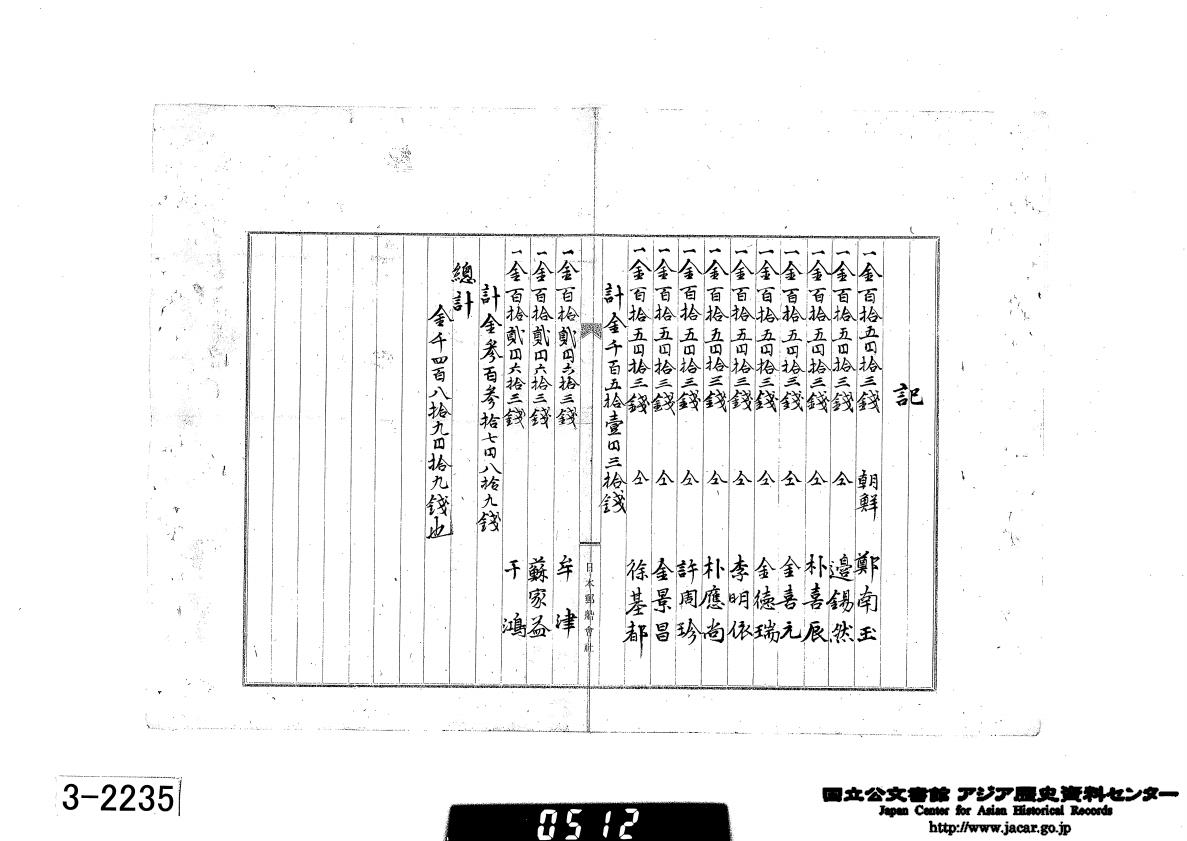 記
一金百拾五円拾三錢 朝鮮 鄭南玉
一金百拾五円拾三錢 仝 邊錫然
一金百拾五円拾三錢 仝 朴喜辰
一金百拾五円拾三錢 仝 金喜元
一金百拾五円拾三錢 仝 金德瑞
一金百拾五円拾三錢 仝 李明依
一金百拾五円拾三錢 仝 朴應尚
一金百拾五円拾三錢 仝 許周珍
一金百拾五円拾三錢 仝 金景昌
一金百拾五円拾三錢 仝 徐基都
計金千百五拾壹円三拾錢
日本郵船會社
一金百拾貳円六拾三錢 牟津
一金百拾貳円六拾三錢 蘇家益
一金百拾貳円六拾三錢 于鴻
計金參百參拾七円八拾九錢
總計
金千四百八拾九円拾九錢也
3-2235
0512
国立公文書館 アジア歴史資料センター
Japan Center for Asian Historical Records
http://www.jacar.go.jp